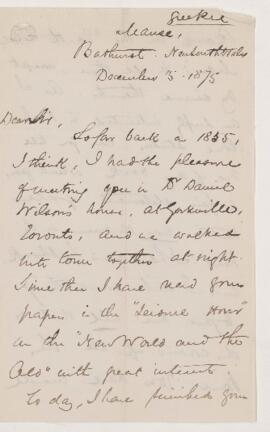 Geekie
Manse,
Bathurst. New South Wales
December 3. 1875
Dear Sir,
So far back as 1855,
I think, I had the pleasure
of meeting you in Dr Daniel
Wilson's house, at Yorkville,
Toronto, and we walked
into town together at night.
Since then I have read your
papers in the "Leisure Hour"
on the "New World and the
Old" with great interest.
To day, I have finished your